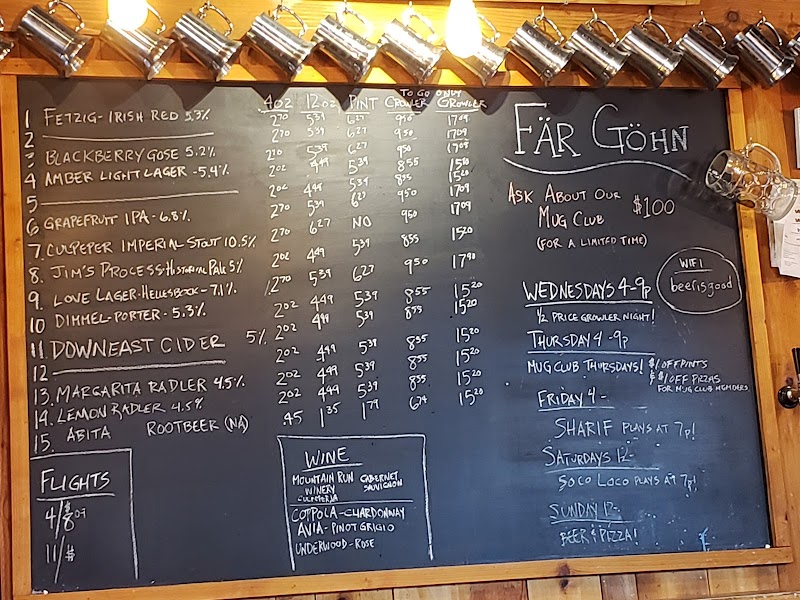 4oz 12oz PINT CROWLER GROWLER
TO GO ONLY
1 FETZIG - IRISH RED 5.3% 2⁷⁰ 5³⁹ 6²⁷ 9⁵⁰ 17⁰⁹
2 2⁷⁰ 5³⁹ 6²⁷ 9⁵⁰ 17⁰⁹
3 BLACKBERRY GOSE 5.2% 2⁷⁰ 5³⁹ 6²⁷ 9⁵⁰ 17⁰⁹
4 AMBER LIGHT LAGER - 5.4% 2⁰² 4⁴⁹ 5³⁹ 8⁵⁵ 15²⁰
5 2⁰² 4⁴⁹ 5³⁹ 8⁵⁵ 15²⁰
6 GRAPEFRUIT IPA - 6.8% 2⁷⁰ 5³⁹ 6²⁷ 9⁵⁰ 17⁰⁹
7. CULPEPER IMPERIAL STOUT 10.5% 2⁷⁰ 6²⁷ NO 9⁵⁰ 17⁰⁹
8. JIM'S PROCESS - HISTORICAL PALE 5% 2⁰² 4⁴⁹ 5³⁹ 8⁵⁵ 15²⁰
9. LOVE LAGER - HELLESBOCK - 7.1% 2⁷⁰ 5³⁹ 6²⁷ 9⁵⁰
10 DIMMEL - PORTER - 5.3% 2⁰² 4⁴⁹ 5³⁹ 8⁵⁵ 15²⁰
11. DOWNEAST CIDER 5% 2⁰² 4⁴⁹ 5³⁹ 15²⁰
12 2⁰² 4⁴⁹ 5³⁹ 8⁵⁵ 15²⁰
13. MARGARITA RADLER 4.5% 2⁰² 4⁴⁹ 5³⁹ 8⁵⁵ 15²⁰
14. LEMON RADLER 4.5% 2⁰² 4⁴⁹ 5³⁹ 8⁵⁵ 15²⁰
15. ABITA ROOTBEER (NA) .45 1³⁵ 1⁷⁹ 6⁷⁴ 15²⁰
FLIGHTS
4/$8⁰⁹
11/$
WINE
MOUNTAIN RUN WINERY CULPEPER VA CABERNET SAUVIGNON
COPPOLA - CHARDONNAY
AVIA - PINOT GRIGIO
UNDERWOOD - ROSE
FÄR GÖHN
ASK ABOUT OUR
MUG CLUB $100
(FOR A LIMITED TIME)
WIFI
beerisgood
WEDNESDAYS 4-9p
½ PRICE GROWLER NIGHT!
THURSDAY 4-9p
MUG CLUB THURSDAYS! $1 OFF PINTS
& $1 OFF PIZZAS
FOR MUG CLUB MEMBERS
FRIDAY 4-
SHARIF PLAYS AT 7p!
SATURDAYS 12-
SOCO LOCO PLAYS AT 7p!
SUNDAY 12-
BEER & PIZZA!